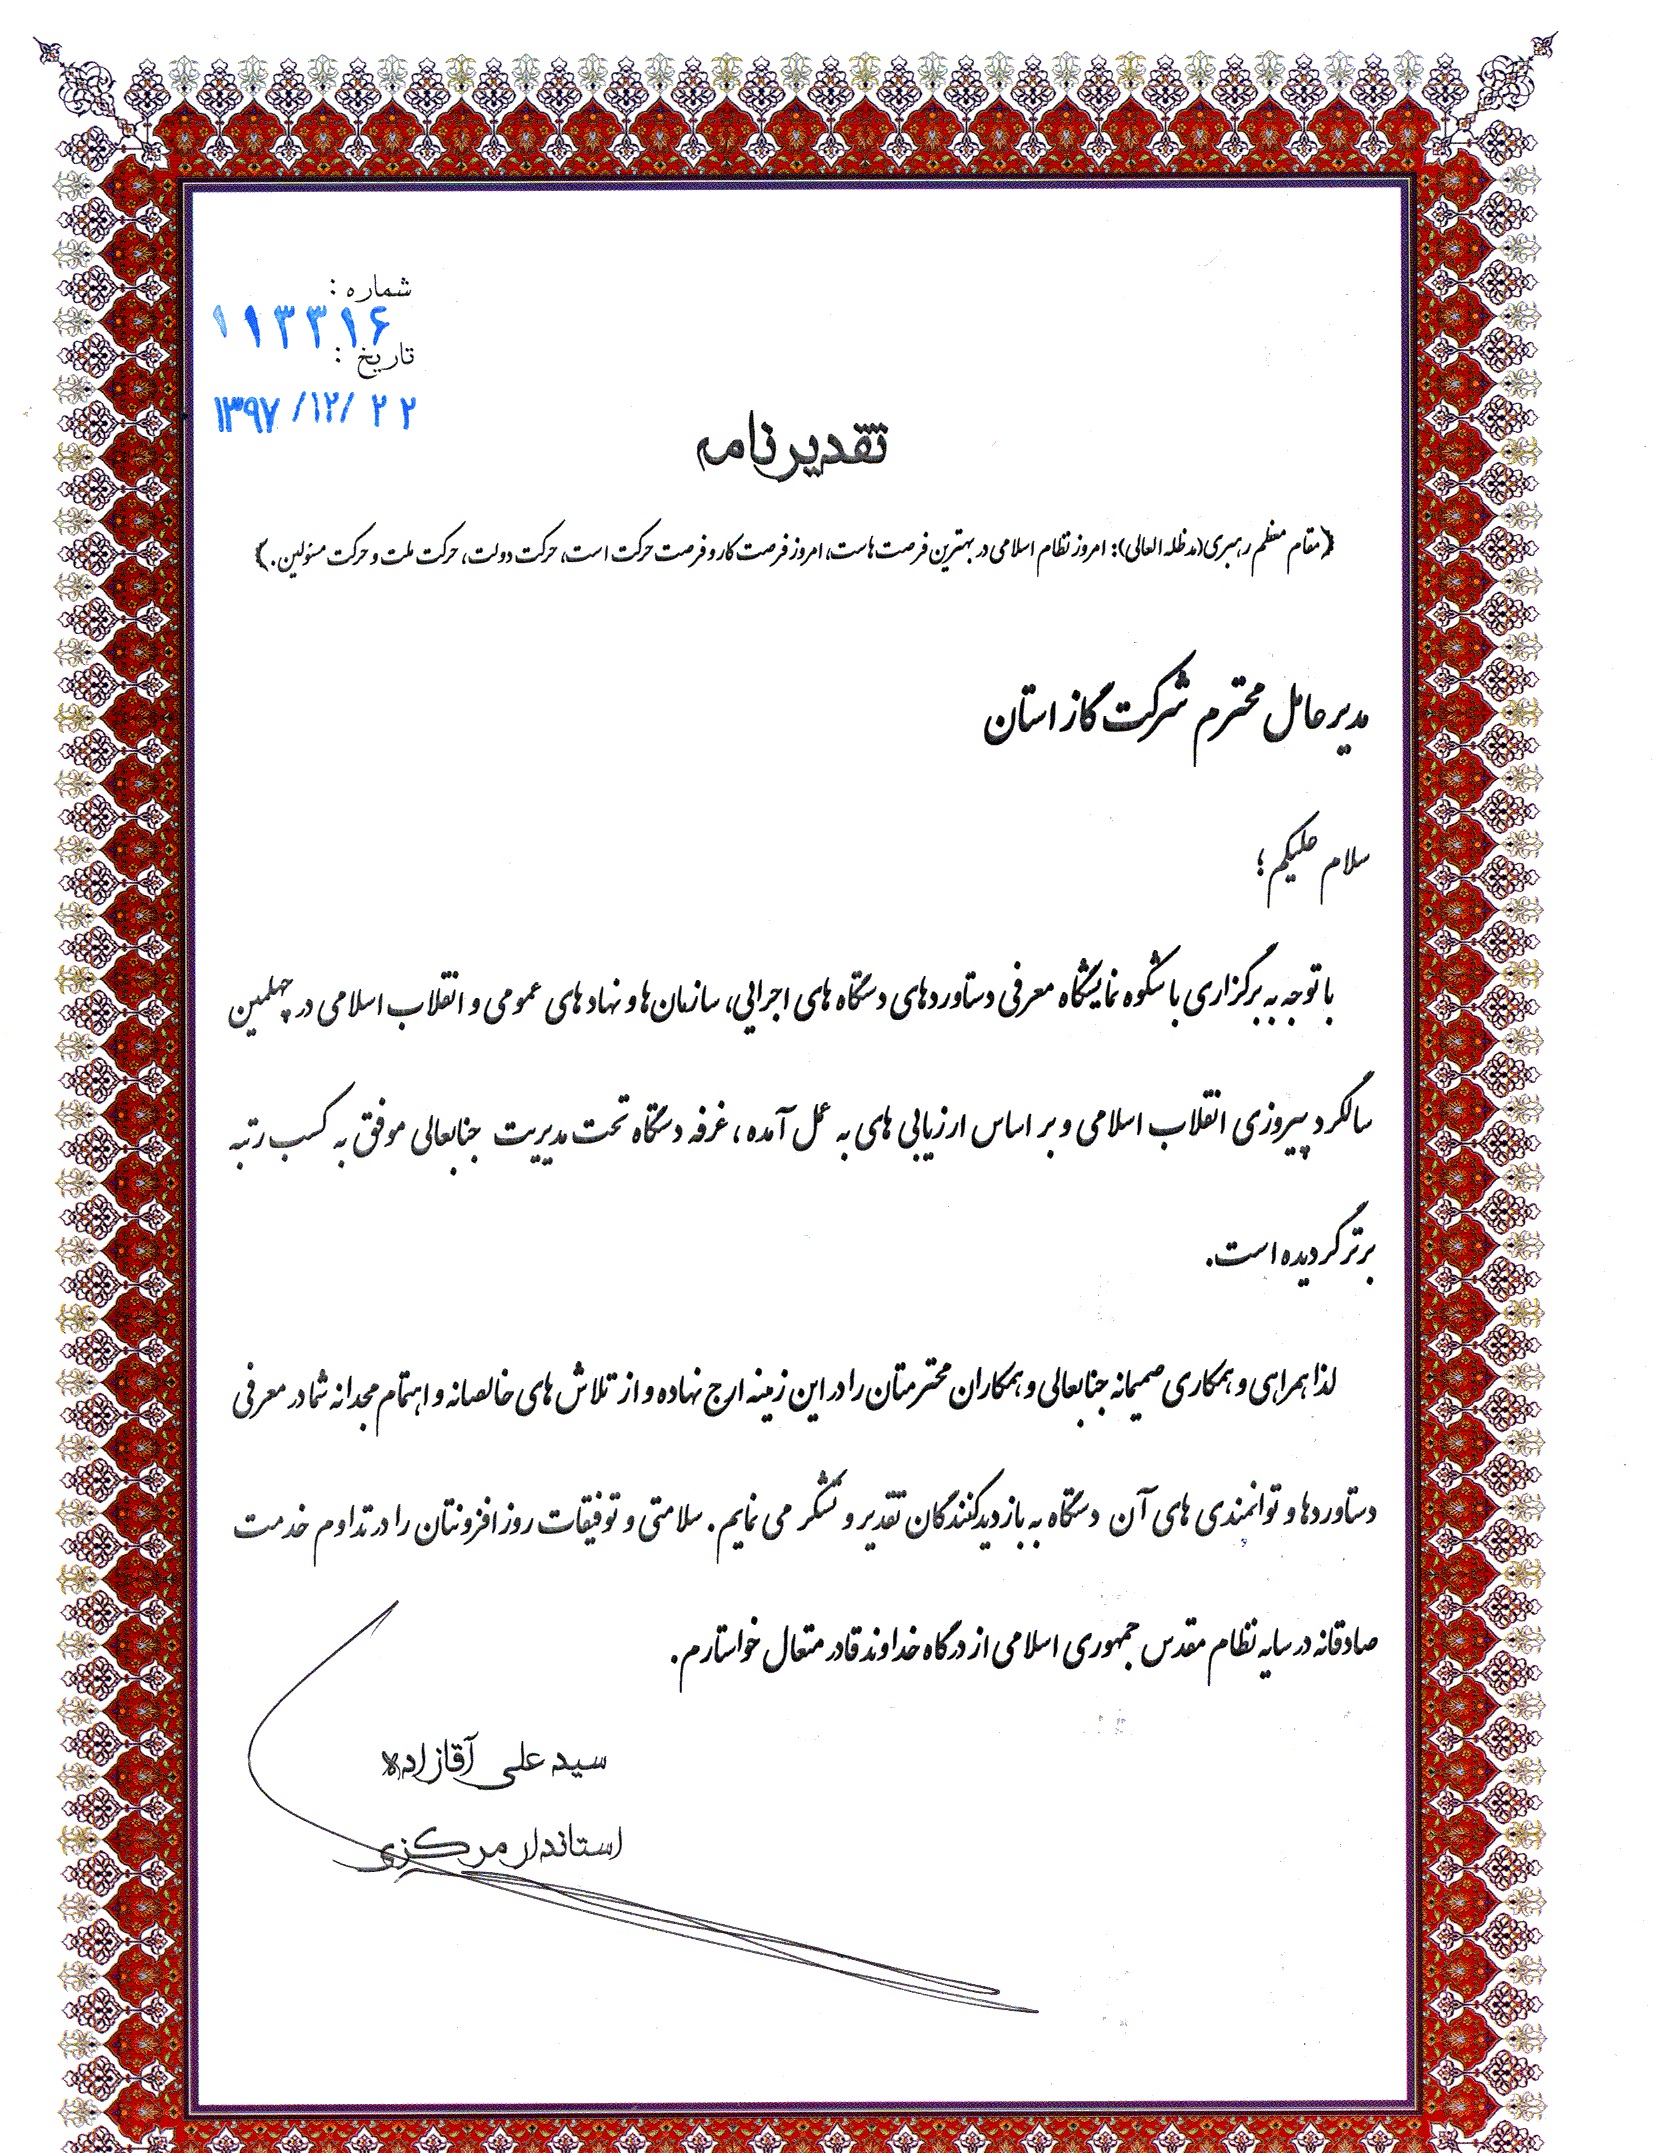 شماره :
۱۱۳۳۱۶
تاریخ :
۱۳۹۷/۱۲/۲۲
تقدیرنامه
﴿مقام معظم رهبری(مدظله العالی): امروز نظام اسلامی در بهترین فرصت هاست، امروز فرصت کار و فرصت حرکت است، حرکت دولت، حرکت ملت و حرکت مسئولین.﴾
مدیرعامل محترم شرکت گاز استان
سلام علیکم؛
با توجه به برگزاری با شکوه نمایشگاه معرفی دستاوردهای دستگاه های اجرایی، سازمان ها و نهادهای عمومی و انقلاب اسلامی در چهلمین
سالگرد پیروزی انقلاب اسلامی و بر اساس ارزیابی های به عمل آمده، غرفه دستگاه تحت مدیریت جنابعالی موفق به کسب رتبه
برتر گردیده است.
لذا همراهی و همکاری صمیمانه جنابعالی و همکاران محترمتان را در این زمینه ارج نهاده و از تلاش های خالصانه و اهتمام مجدانه شما در معرفی
دستاوردها و توانمندی های آن دستگاه به بازدیدکنندگان تقدیر و تشکر می نمایم. سلامتی و توفیقات روزافزونتان را در تداوم خدمت
صادقانه در سایه نظام مقدس جمهوری اسلامی از درگاه خداوند قادر متعال خواستارم.
سید علی آقازاده
استاندار مرکزی